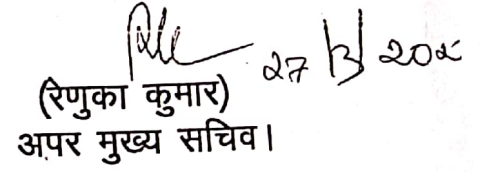 27/3/202
(रेणुका कुमार)
अपर मुख्य सचिव।